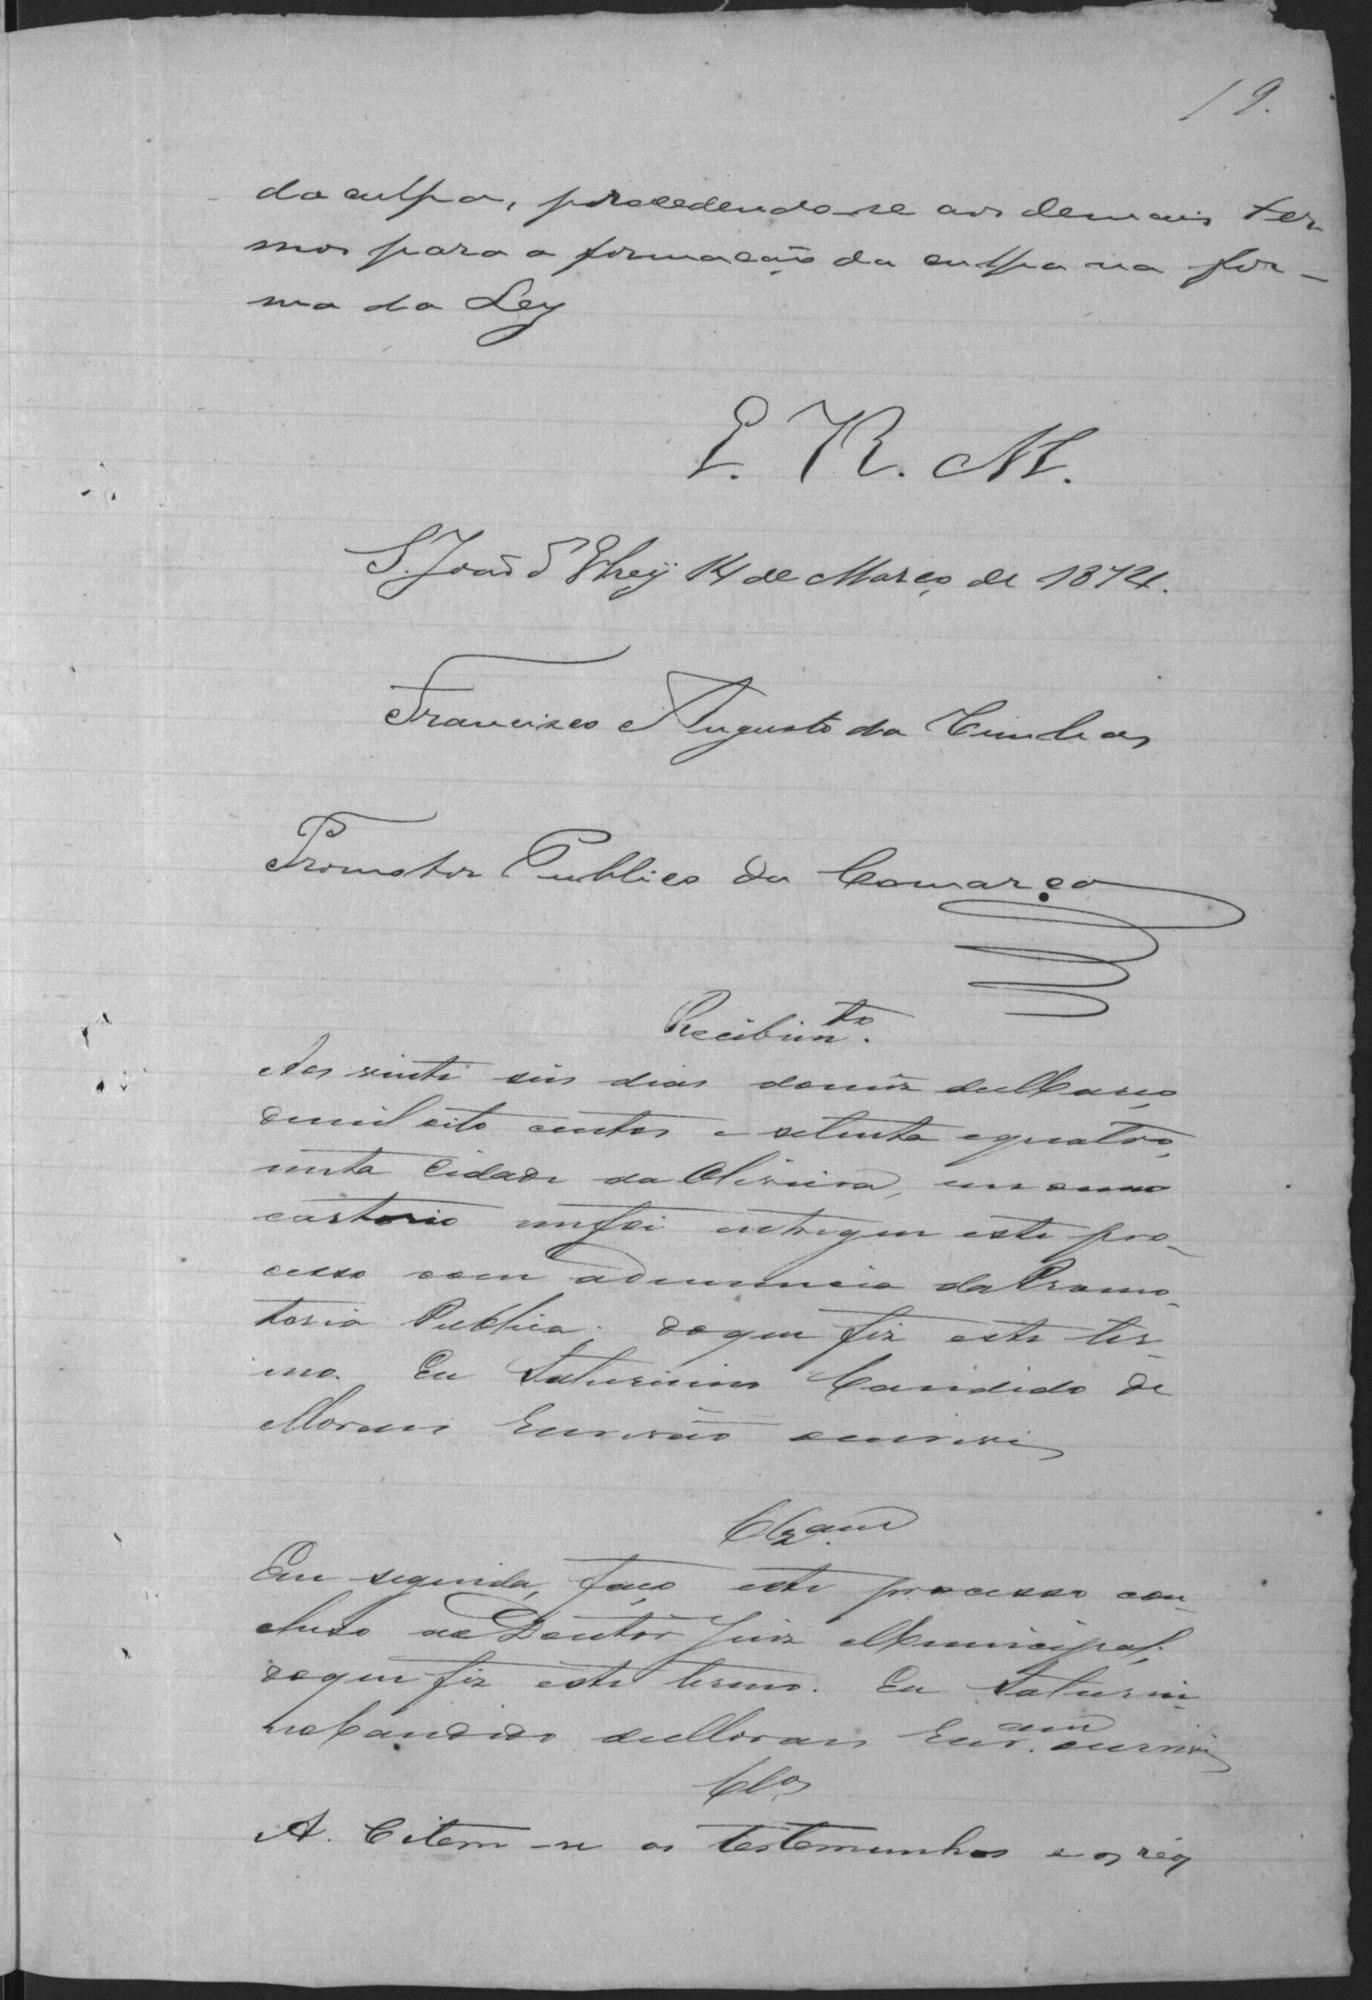 19.
da culpa, procedendo-se aos demais ter
mos para a formação da culpa na for-
ma da Ley
E. R. M.
S. João d'Elrey 14 de Março de 1874.
Francisco Augusto da Cunha
Promotor Publico da Comarca
Recebim.to
Aos vinte seis dias do mez de Março
de mil oito centos e setenta e quatro,
nesta Cidade da Oliveira, em meu
cartorio me foi entregue este pro-
cesso com a denuncia da Promo-
toria Publica; do que fiz este ter-
mo. Eu Saturnino Candido de
Moraes Escrivão escrevi
Clzam
Em seguida, faço este processo con-
cluso ao Doutor Juiz Municipal;
do que fiz este termo. Eu Saturni-
no Candido de Moraes Escr.am escrevi
Clos
A. Citem-se as testemunhas e os réos